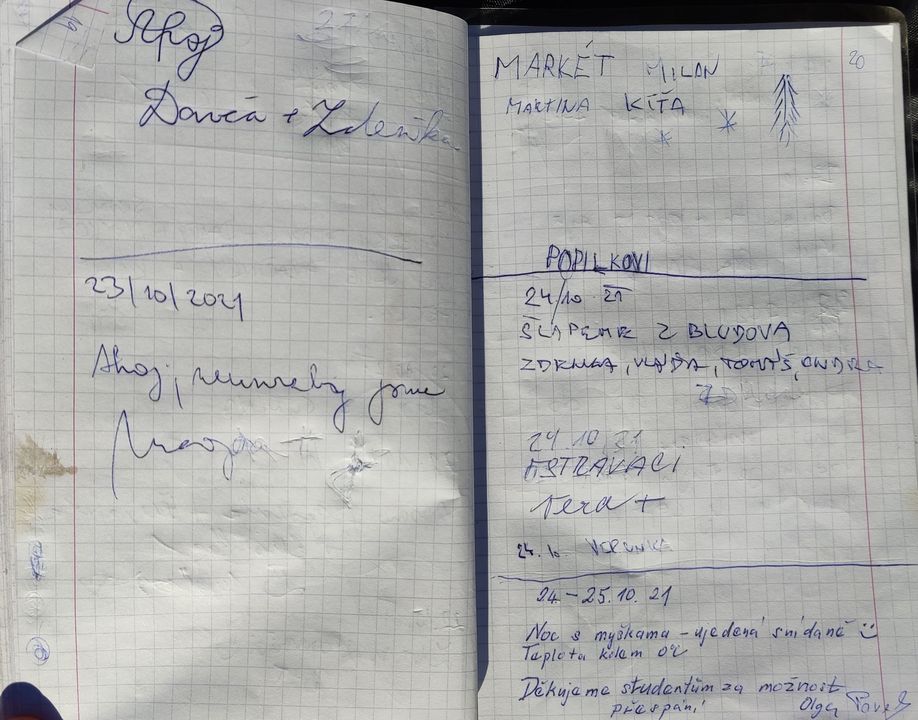 19
Ahoj
Davča + Zdeňka
23/10/2021
Ahoj, jsme
20
MARKÉT MILAN
MARTINA KÍŤA
POPILKOVI
24/10 21
ŠLAPEME Z BLUDOVA
ZDENKA, VLAĎA, TOMÁŠ, ONDRA
24.10.21
OSTRAVACI
24.10. VERUNKA
24.–25.10.21
Noc s myškama – ujedená snídaně
Teplota kolem 0°C
Děkujeme studentům za možnost
přespání Olga Pavel